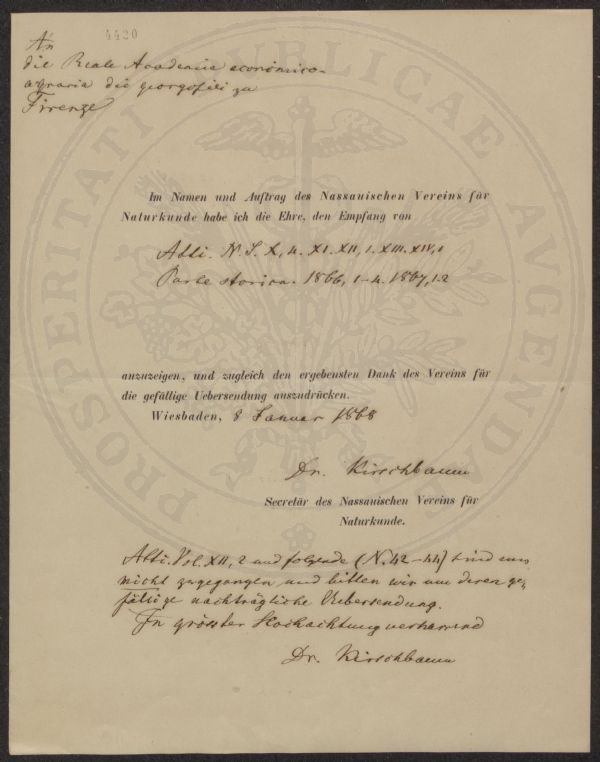 4420
An
die Reale Accademia economico-
agraria dei georgofili zu
Firenze
PROSPERITATI PUBLICAE AVGENDAE
Im Namen und Auftrag des Nassauischen Vereins für
Naturkunde habe ich die Ehre, den Empfang von
Atti. N. S. X, 4. XI. XII, 1. XIII. XIV, 1
Parte storica. 1866, 1-4. 1867, 1.2
anzuzeigen, und zugleich den ergebensten Dank des Vereins für
die gefällige Uebersendung auszudrücken.
Wiesbaden, 8 Januar 1868
Dr. Kirschbaum
Secretär des Nassauischen Vereins für
Naturkunde.
Atti. Vol. XII, 2 und folgende (N. 42-44) sind uns
nicht zugegangen und bitten wir um deren ge-
fällige nachträgliche Uebersendung.
In grösster Hochachtung verharrend
Dr. Kirschbaum